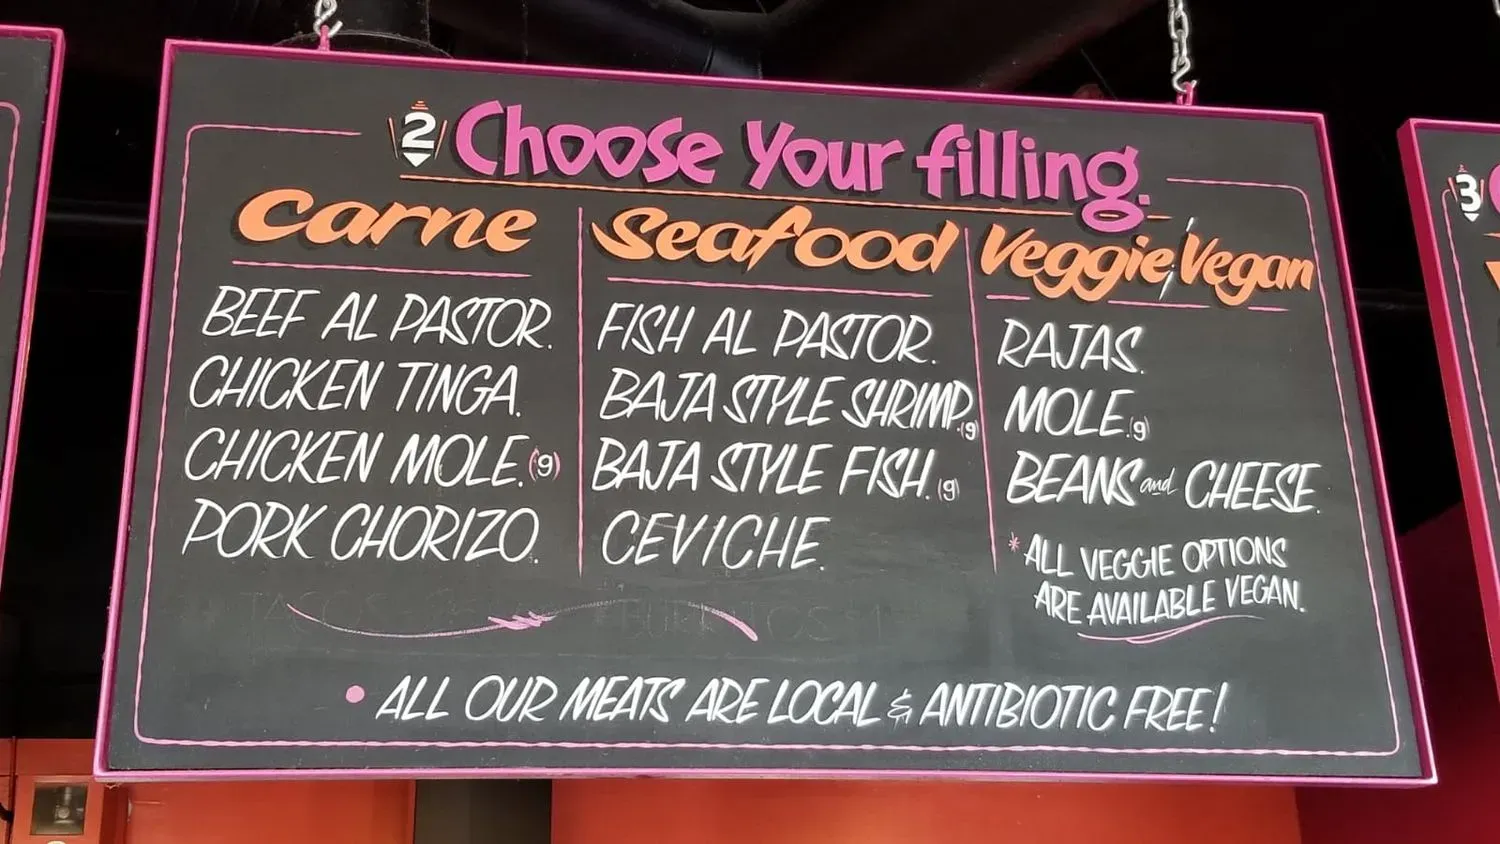 2 Choose Your filling.
Carne
BEEF AL PASTOR.
CHICKEN TINGA.
CHICKEN MOLE.(g)
PORK CHORIZO.
Seafood
FISH AL PASTOR.
BAJA STYLE SHRIMP.(g)
BAJA STYLE FISH.(g)
CEVICHE.
Veggie/Vegan
RAJAS.
MOLE.(g)
BEANS and CHEESE.
*ALL VEGGIE OPTIONS
ARE AVAILABLE VEGAN.
TACOS
• ALL OUR MEATS ARE LOCAL & ANTIBIOTIC FREE!
3